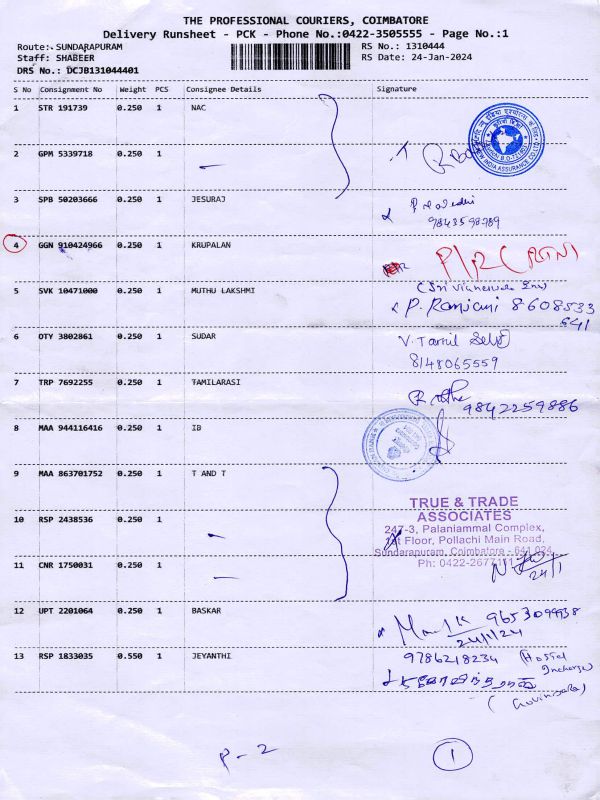 THE PROFESSIONAL COURIERS, COIMBATORE
Delivery Runsheet - PCK - Phone No.:0422-3505555 - Page No.:1
Route: SUNDARAPURAM
RS No.: 1310444
Staff: SHABEER
RS Date: 24-Jan-2024
DRS No.: DCJB131044401
S No Consignment No Weight PCS Consignee Details Signature
1 STR 191739 0.250 1 NAC
2 GPM 5339718 0.250 1
3 SPB 50203666 0.250 1 JESURAJ
9843598789
4 GGN 910424966 0.250 1 KRUPALAN
5 SVK 10471000 0.250 1 MUTHU LAKSHMI
P. Ranjani 8608533
641
6 OTY 3802861 0.250 1 SUDAR V. Tamil Selvi
8148065559
7 TRP 7692255 0.250 1 TAMILARASI
9842259886
8 MAA 944116416 0.250 1 IB
9 MAA 863701752 0.250 1 T AND T
TRUE & TRADE
ASSOCIATES
247-3, Palaniammal Complex,
1st Floor, Pollachi Main Road,
Sundarapuram, Coimbatore - 641 024
Ph: 0422-2677
10 RSP 2438536 0.250 1
11 CNR 1750031 0.250 1
24/1
12 UPT 2201064 0.250 1 BASKAR
24/1/24
13 RSP 1833035 0.550 1 JEYANTHI 9786218234 (Hostel
Incharge)
P - 2
1